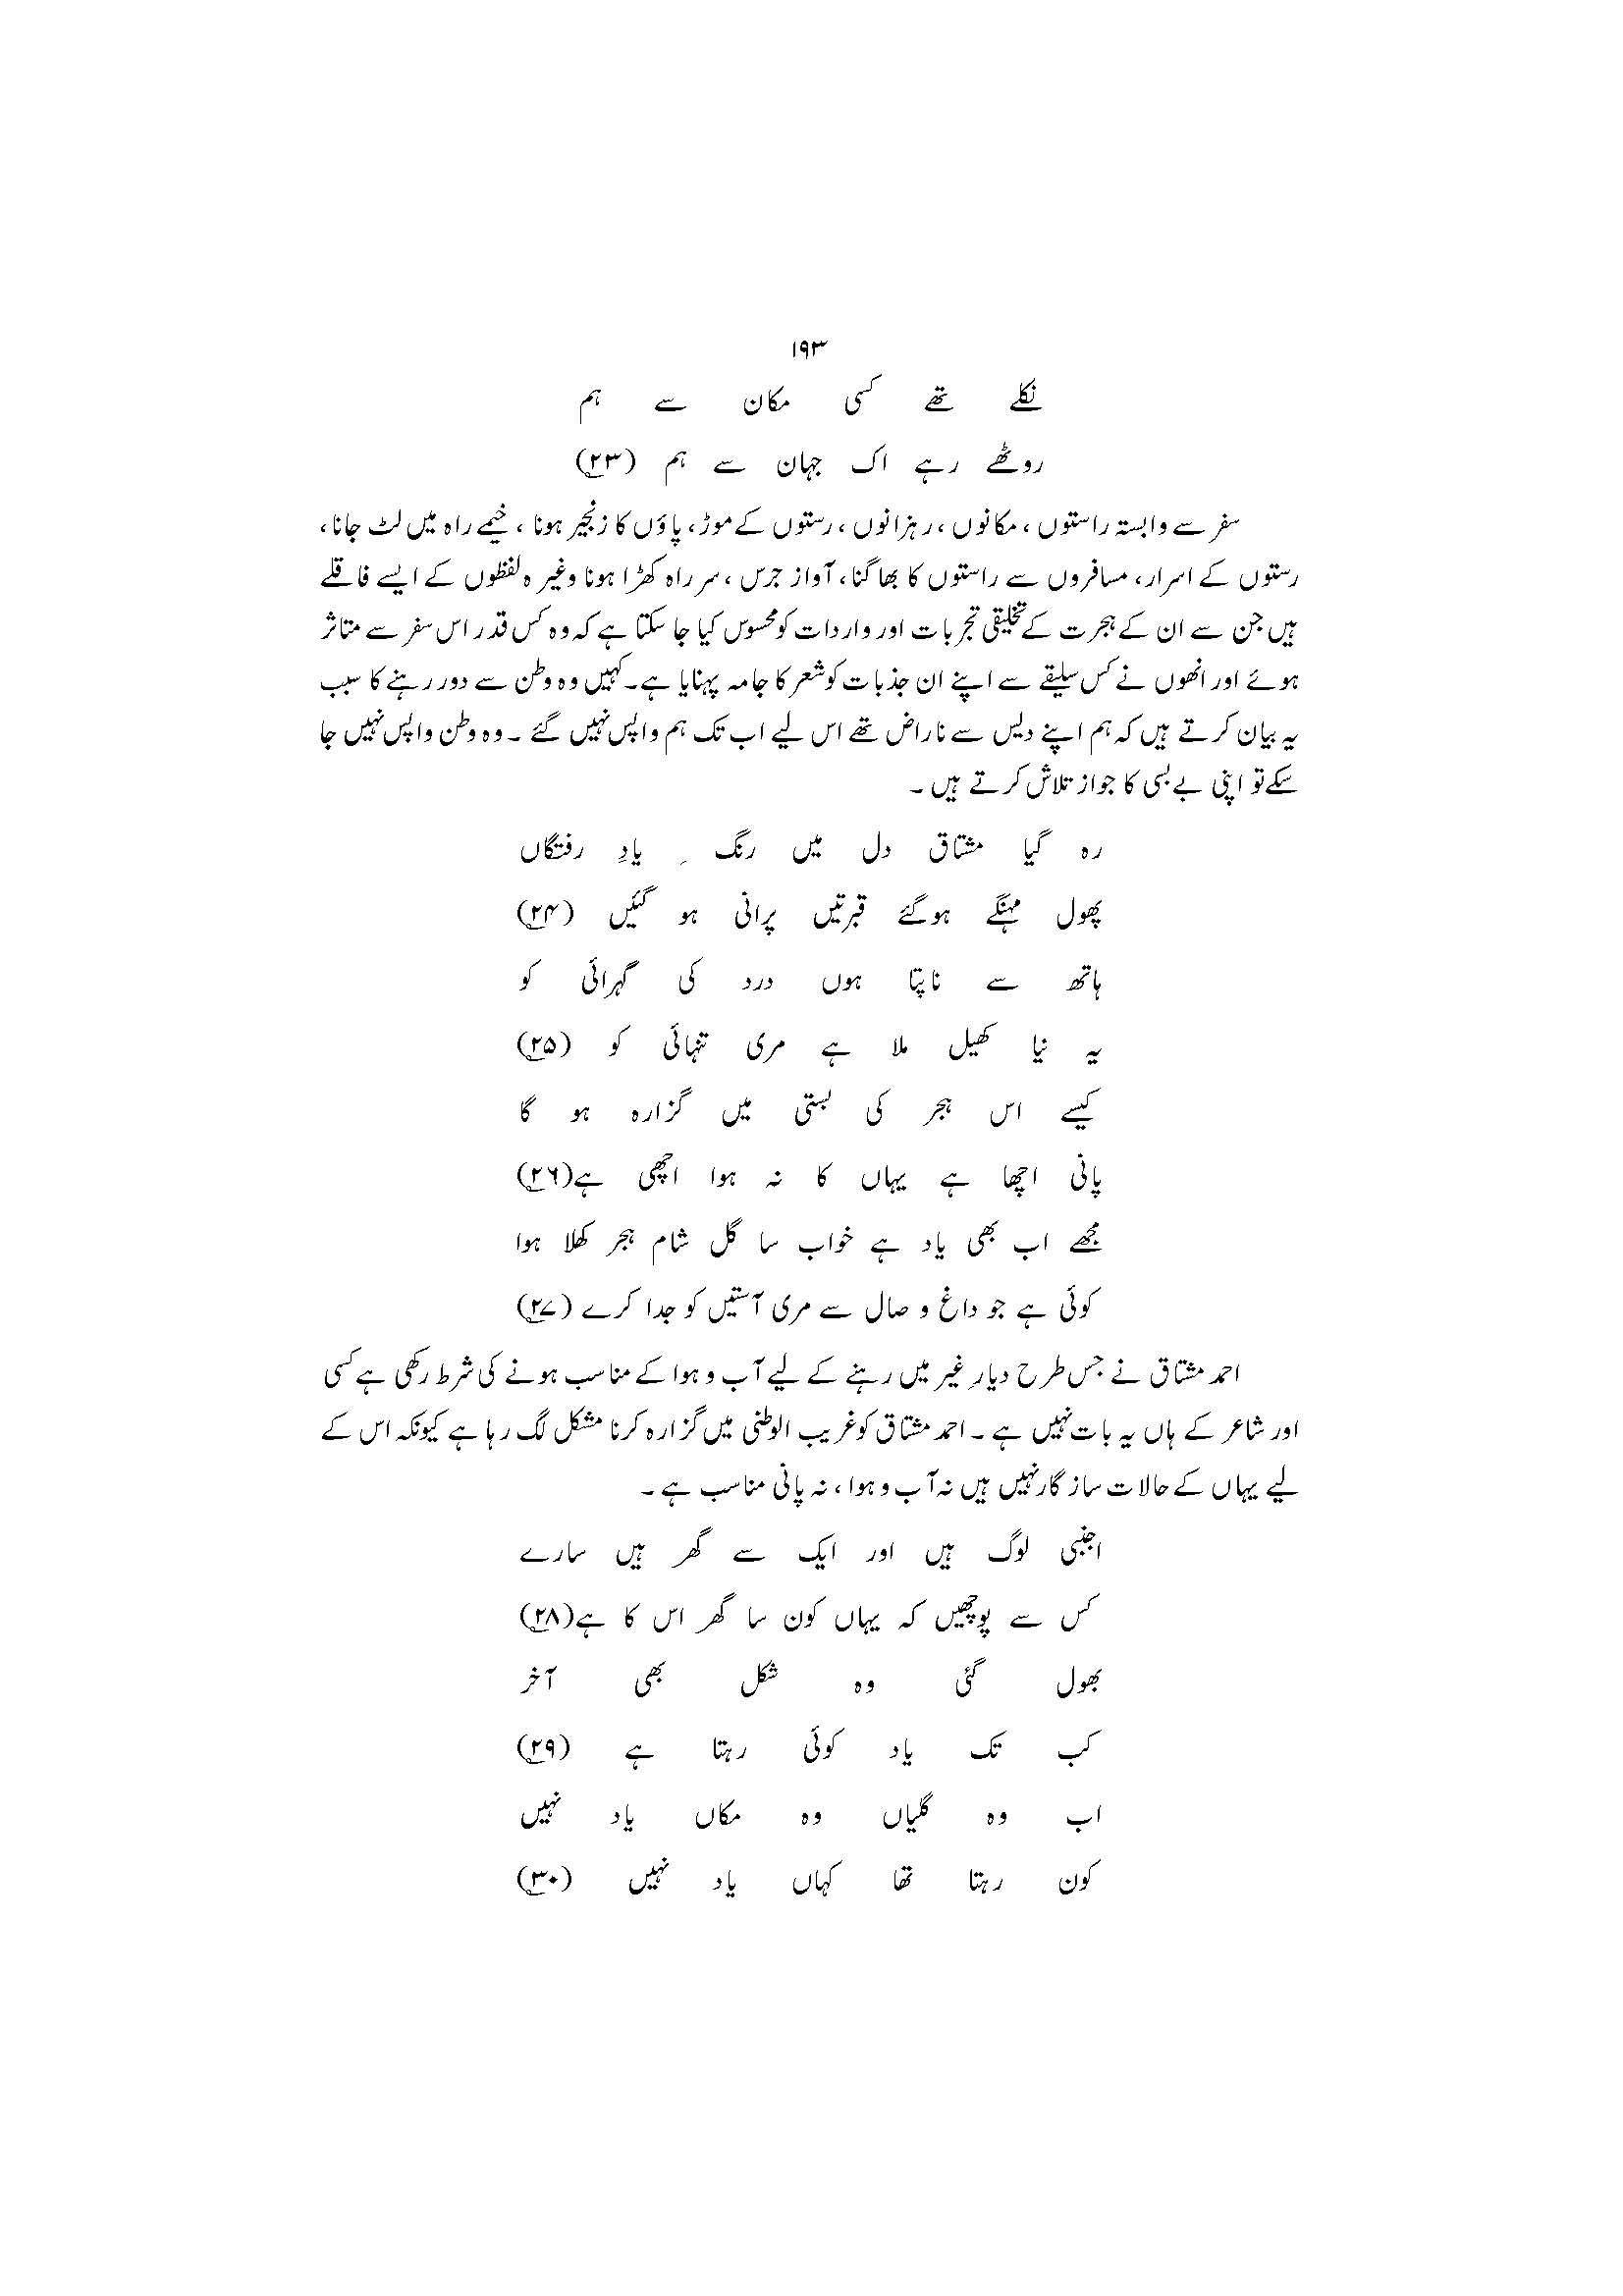 ۱۹۳
نکلے تھے کسی مکان سے ہم
روٹھے رہے اک جہان سے ہم (۲۳)
سفر سے وابستہ راستوں، مکانوں، رہزانوں، رستوں کے موڑ، پاؤں کا زنجیر ہونا، خیمے راہ میں لٹ جانا،
رستوں کے اسرار، مسافروں سے راستوں کا بھاگنا، آواز جرس، سر راہ کھڑا ہونا وغیرہ لفظوں کے ایسے فاقلے
ہیں جن سے ان کے ہجرت کے تخلیقی تجربات اور واردات کو محسوس کیا جا سکتا ہے کہ وہ کس قدر اس سفر سے متاثر
ہوئے اور انھوں نے کس سلیقے سے اپنے ان جذبات کو شعر کا جامہ پہنایا ہے۔ کہیں وہ وطن سے دور رہنے کا سبب
یہ بیان کرتے ہیں کہ ہم اپنے دیس سے ناراض تھے اس لیے اب تک ہم واپس نہیں گئے۔ وہ وطن واپس نہیں جا
سکے تو اپنی بے بسی کا جواز تلاش کرتے ہیں۔
رہ گیا مشتاق دل میں رنگ ِ یادِ رفتگاں
پھول مہنگے ہوگئے قبرتیں پرانی ہو گئیں (۲۴)
ہاتھ سے ناپتا ہوں درد کی گہرائی کو
یہ نیا کھیل ملا ہے مری تنہائی کو (۲۵)
کیسے اس ہجر کی بستی میں گزارہ ہو گا
پانی اچھا ہے یہاں کا نہ ہوا اچھی ہے(۲۶)
مجھے اب بھی یاد ہے خواب سا گل شام ہجر کھلا ہوا
کوئی ہے جو داغ و صال سے مری آستیں کو جدا کرے (۲۷)
احمد مشتاق نے جس طرح دیارِ غیر میں رہنے کے لیے آب و ہوا کے مناسب ہونے کی شرط رکھی ہے کسی
اور شاعر کے ہاں یہ بات نہیں ہے۔ احمد مشتاق کو غریب الوطنی میں گزارہ کرنا مشکل لگ رہا ہے کیونکہ اس کے
لیے یہاں کے حالات ساز گار نہیں ہیں نہ آب و ہوا، نہ پانی مناسب ہے۔
اجنبی لوگ ہیں اور ایک سے گھر ہیں سارے
کس سے پوچھیں کہ یہاں کون سا گھر اس کا ہے(۲۸)
بھول گئی وہ شکل بھی آخر
کب تک یاد کوئی رہتا ہے (۲۹)
اب وہ گلیاں وہ مکاں یاد نہیں
کون رہتا تھا کہاں یاد نہیں (۳۰)